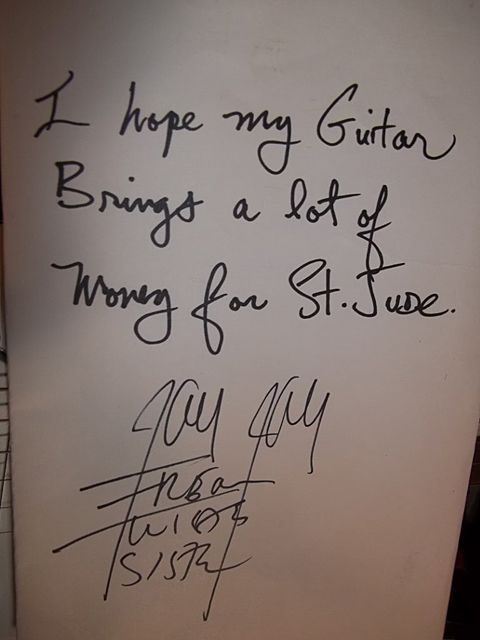 I hope my Guitar
Brings a lot of
Money for St. Jude.
Jay Jay